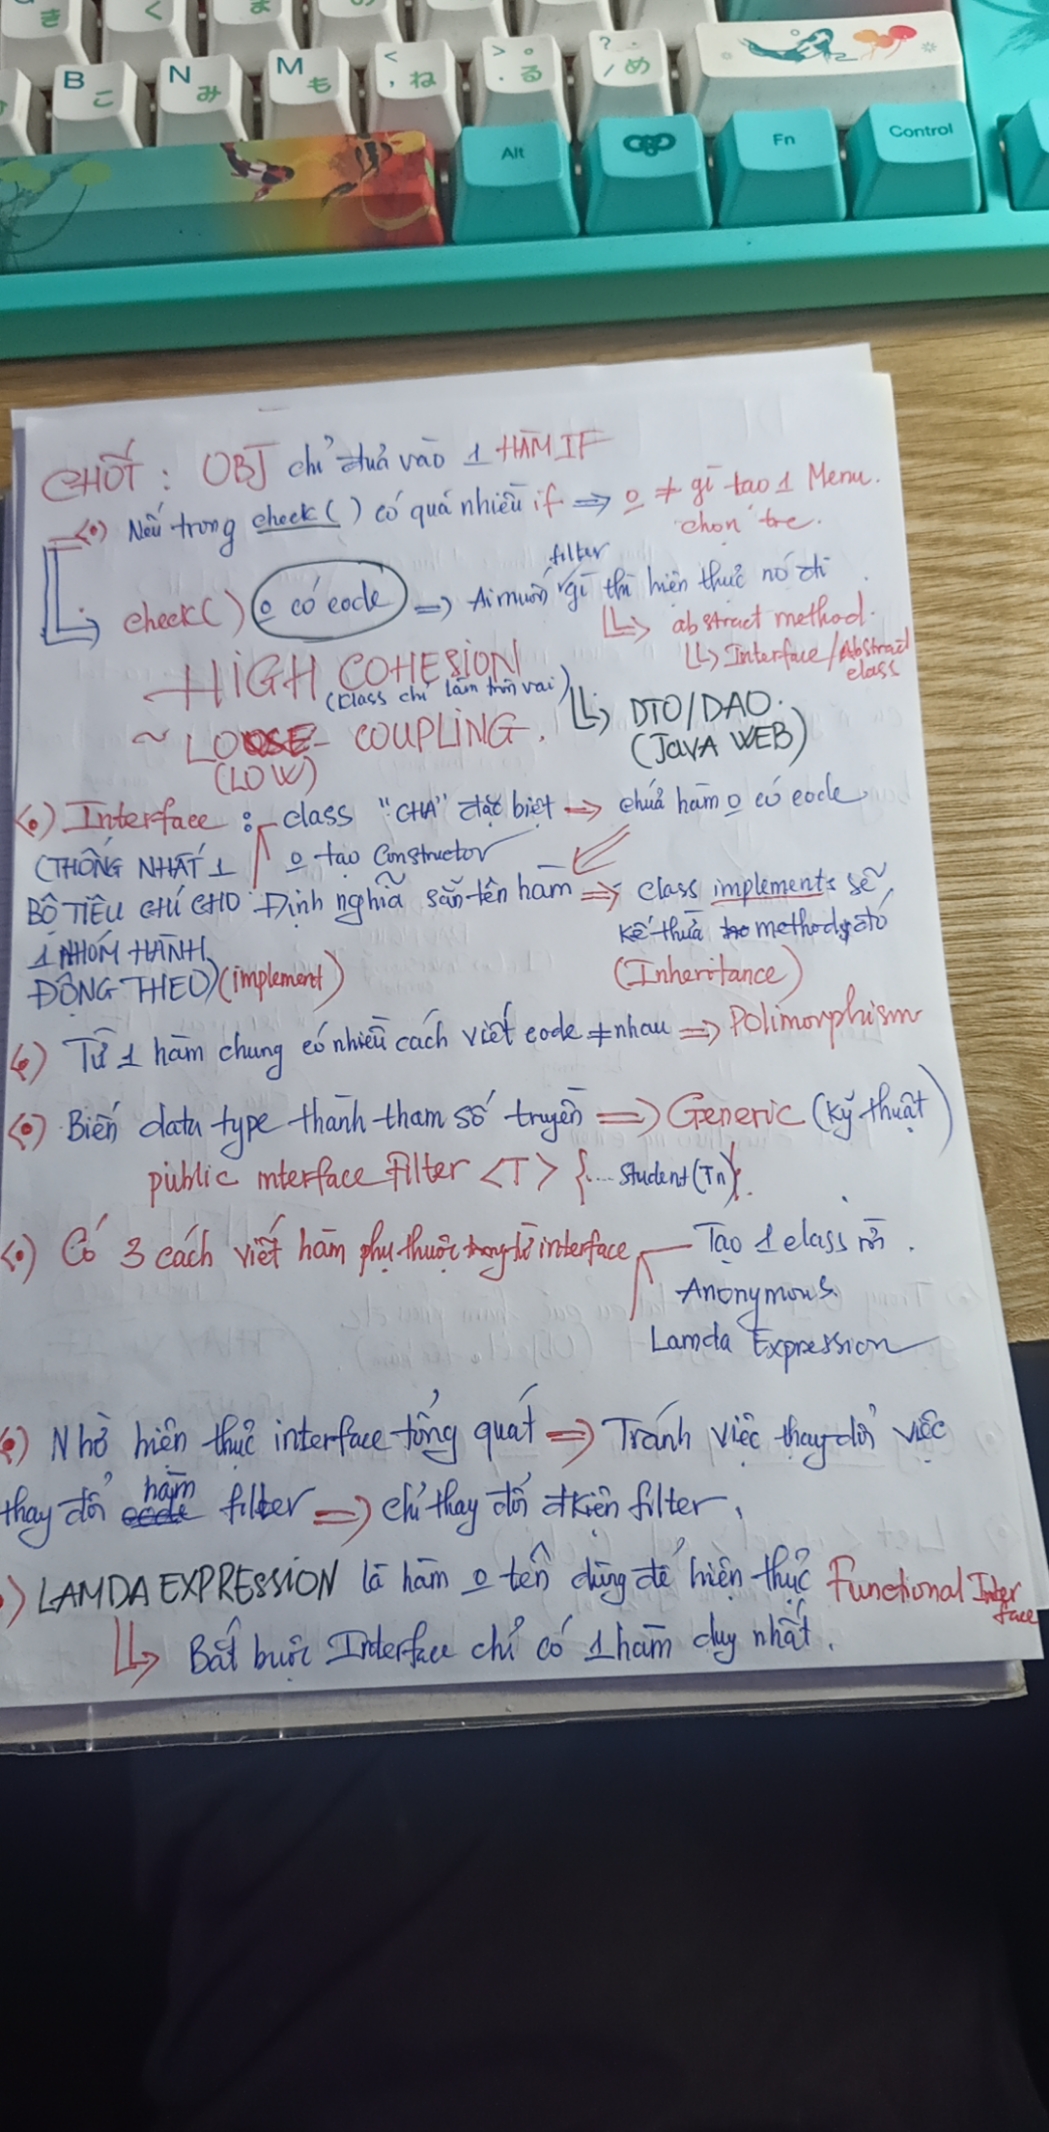 B こ N み M も < , ね > . 。 る ? / ・ め
Alt Fn Control
CHỐT : OBJ chỉ đưa vào 1 HÀM IF
<•) Nếu trong check( ) có quá nhiều if => o ≠ gì tạo 1 Menu.
chọn
check( ) o có code => Ai muốn filter gì thì hiện thực nó đi
↳ abstract method.
↳ Interface/Abstract class
HIGH COHESION
(Class chỉ làm tròn vai)
~ LOOSE - COUPLING.
(LOW)
↳ DTO/DAO.
(JAVA WEB)
<•) Interface : class "CHA" đặc biệt => chứa hàm o có code
o tạo Constructor
(THỐNG NHẤT 1
BỘ TIÊU CHÍ CHO
1 NHÓM HÀNH
ĐỘNG THEO) (implement)
Định nghĩa sẵn tên hàm => class implements sẽ
kế thừa method đó
(Inheritance)
<•) Từ 1 hàm chung có nhiều cách viết code ≠ nhau => Polimorphism
<•) Biến data type thành tham số truyền => Generic (Kỹ thuật)
public interface Filter <T> {... Student(Tn)}.
<•) Có 3 cách viết hàm phụ thuộc từ interface
Tạo 1 class mới.
Anonymous.
Lamda Expression
<•) Nhờ hiện thực interface tổng quát => Tránh việc thay đổi việc
thay đổi hàm filter => chỉ thay đổi đkiện filter.
<•) LAMDA EXPRESSION là hàm o tên dùng để hiện thực Functional Interface
↳ Bắt buộc Interface chỉ có 1 hàm duy nhất.